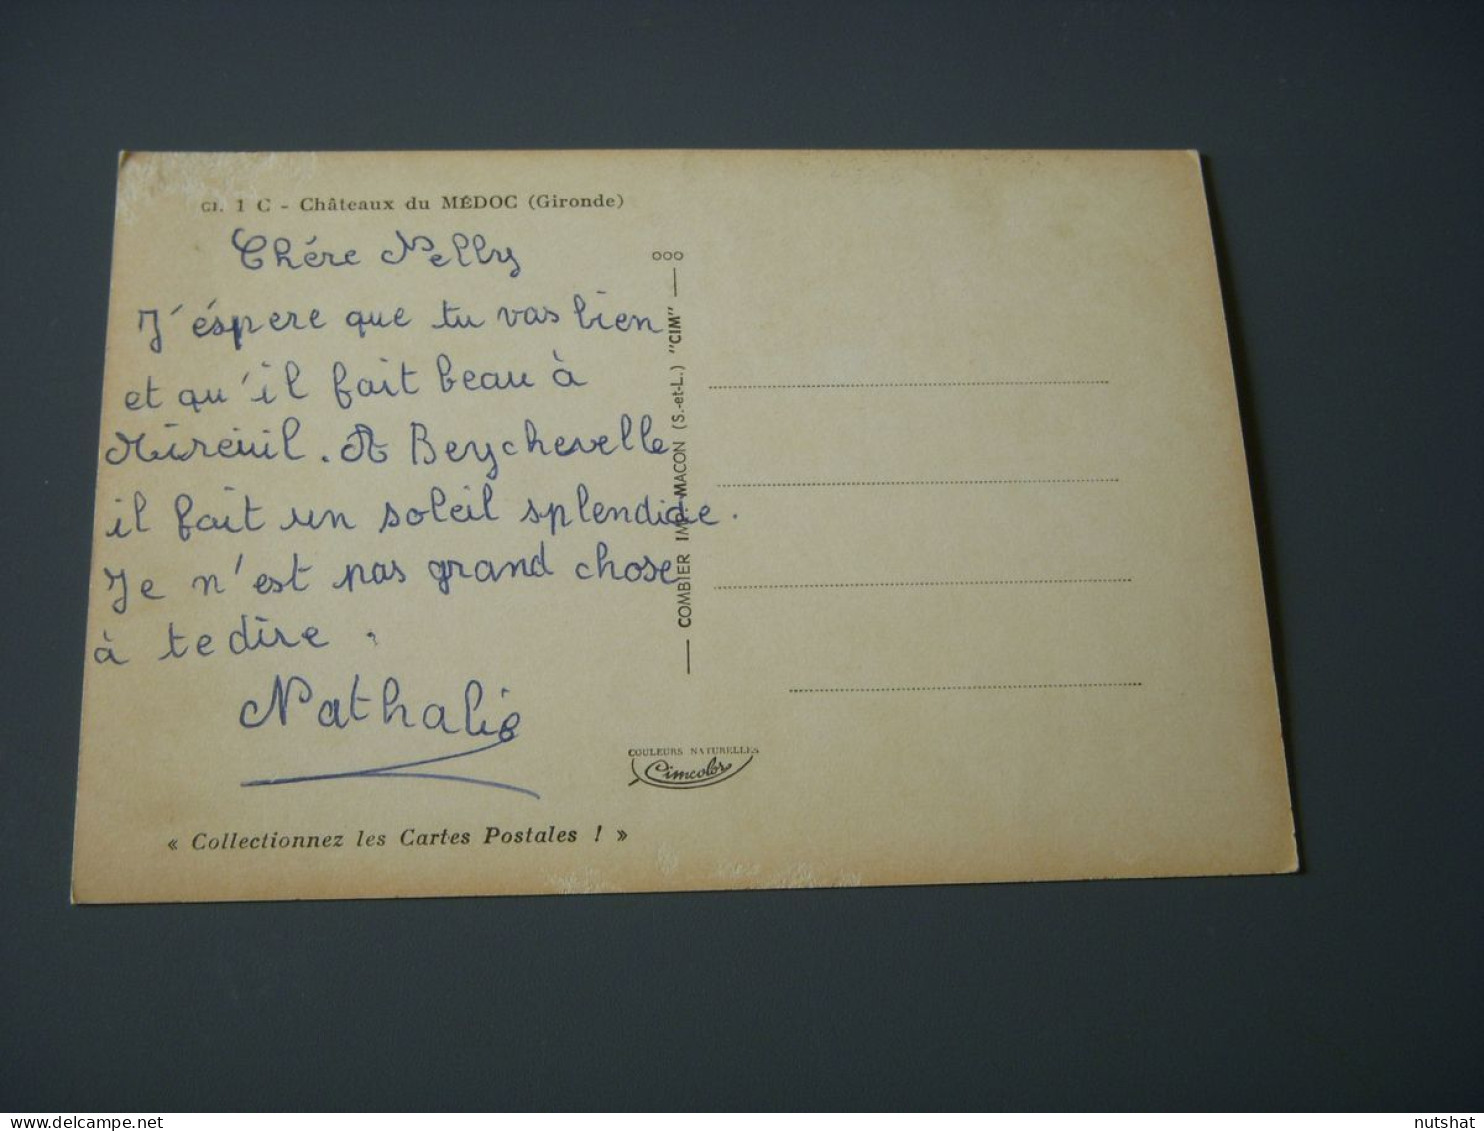 CI. 1 C - Châteaux du MÉDOC (Gironde)
Chére Nelly
J'éspere que tu vas bien
et qu'il fait beau à
Mireuil. A Beychevelle
il fait un soleil splendide.
Je n'est pas grand chose
à te dire.
Nathalie
« Collectionnez les Cartes Postales ! »
COMBIER IMP. MACON (S.-et-L.) "CIM"
COULEURS NATURELLES
Cimcolor
nutshat